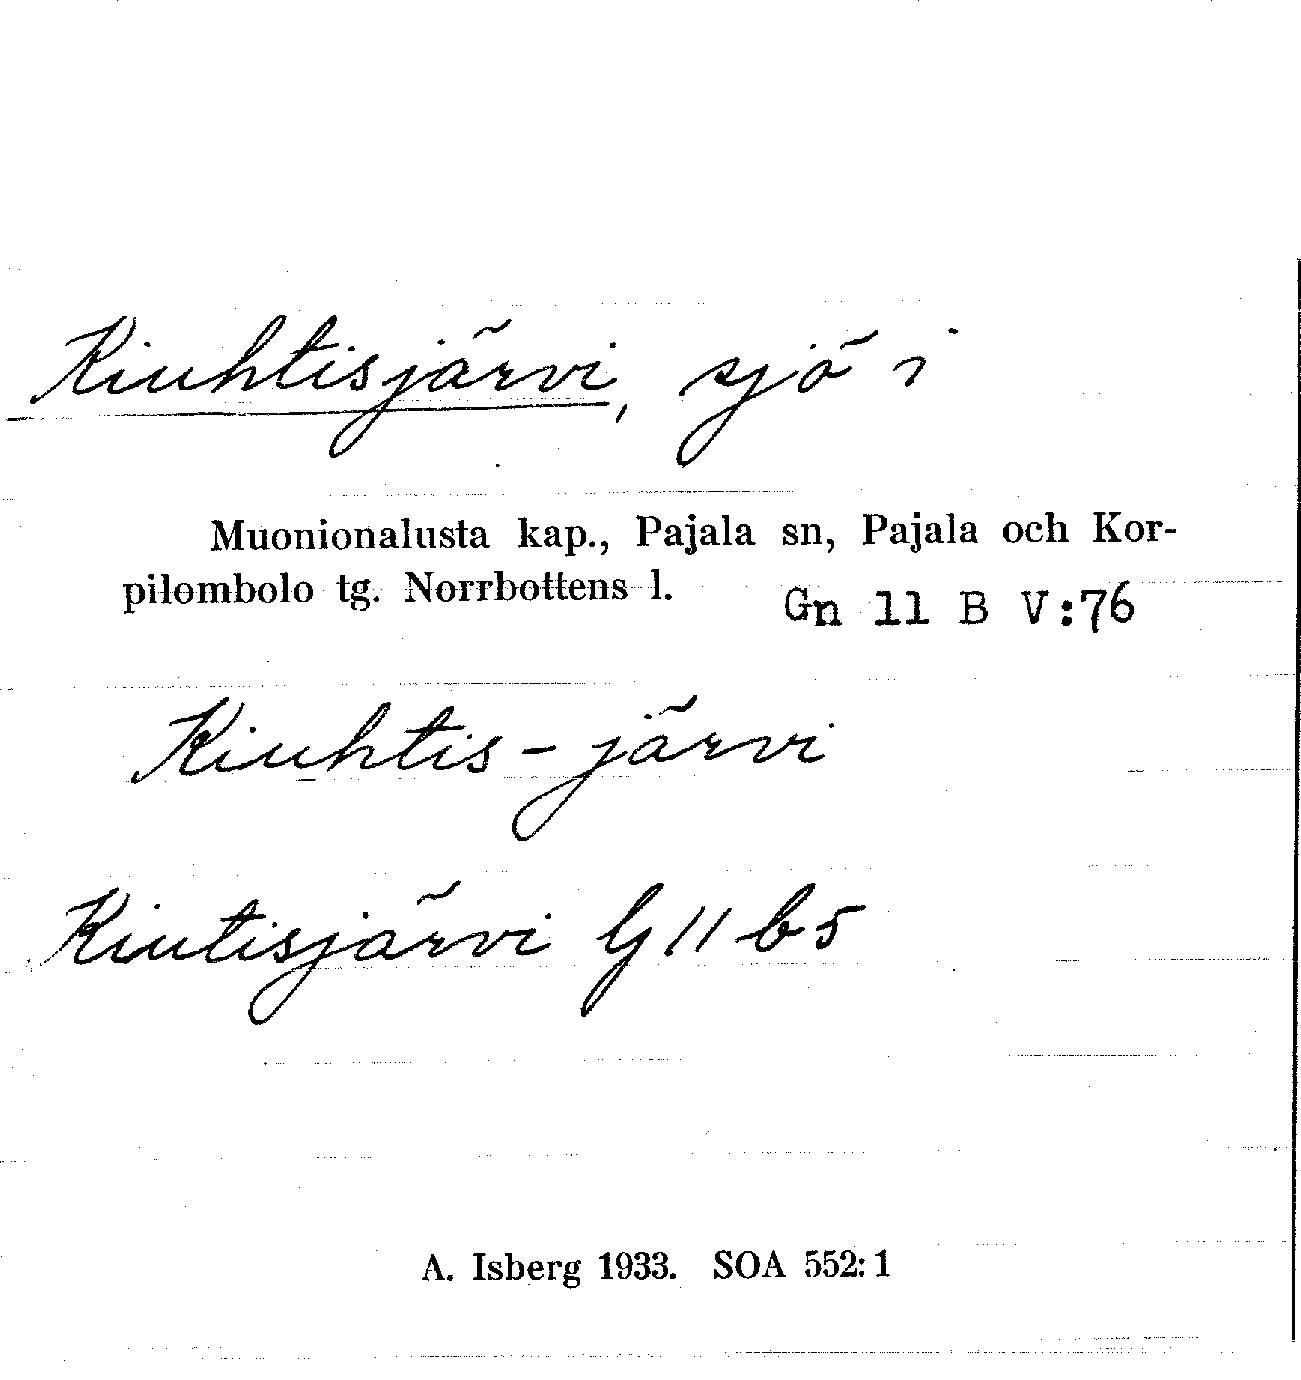 Kiuhtisjärvi, sjö i
Muonionalusta kap., Pajala sn, Pajala och Kor-
pilombolo tg. Norrbottens l.
Gn 11 B V:76
Kiuhtis-järvi
Kiutisjärvi G 11 b 5
A. Isberg 1933. SOA 552:1